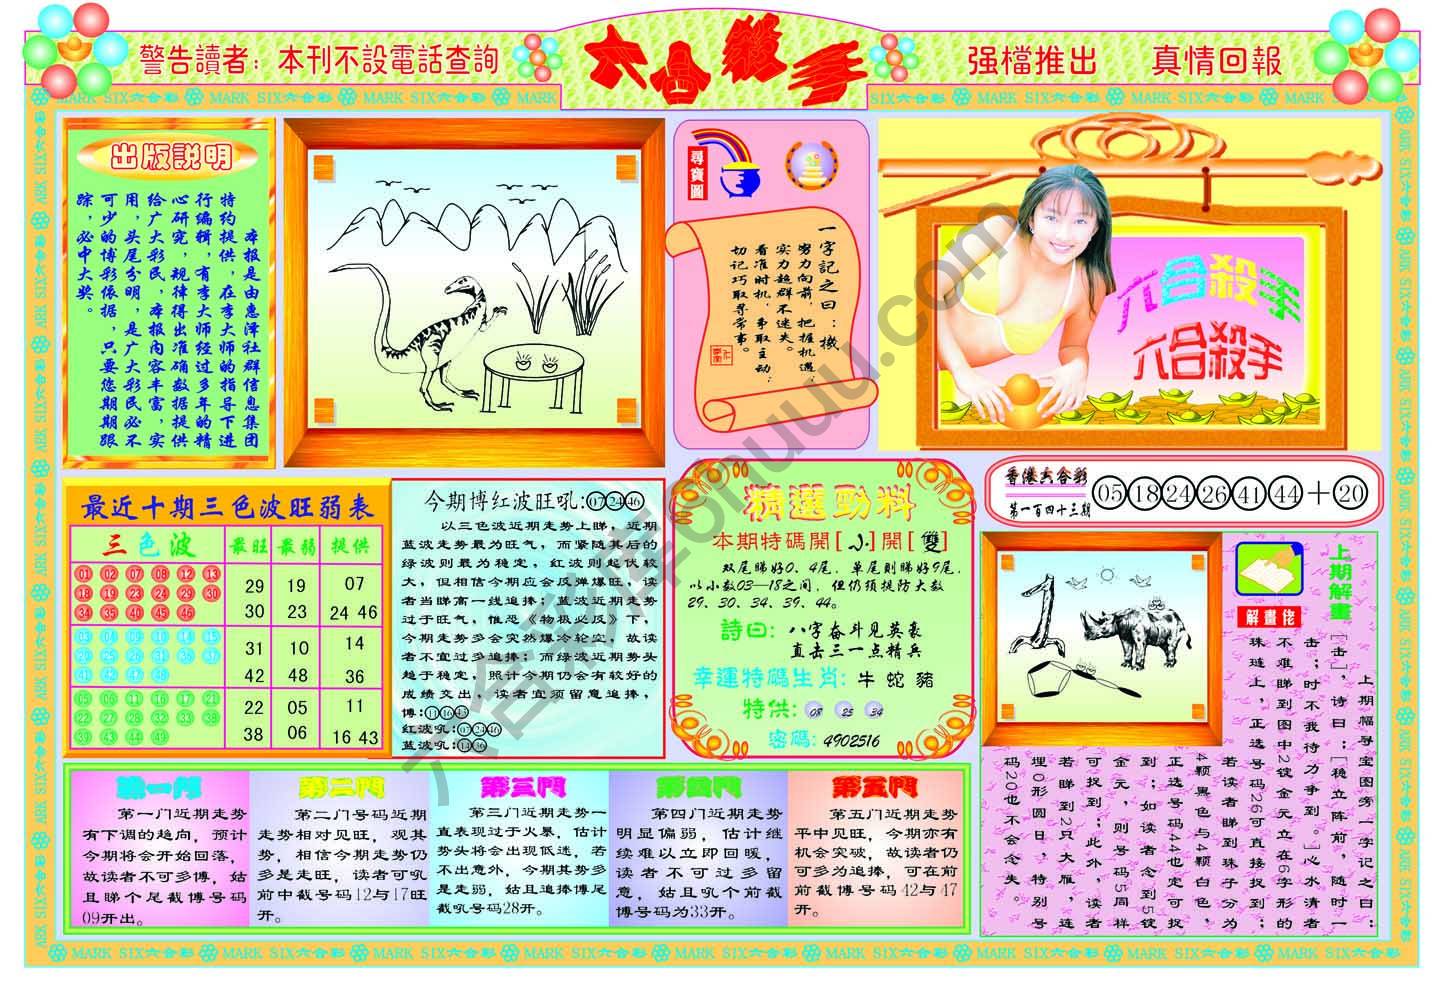 警告讀者：本刊不設電話查詢
六合殺手
强檔推出 真情回報
MARK SIX六合彩 MARK SIX六合彩 MARK SIX六合彩 MARK
SIX六合彩 MARK SIX六合彩 MARK SIX六合彩 MARK SIX六合彩
出版説明
本报是由惠泽社群信息集团
特约提供，在李大师的指导下进
行编辑，有李大师经过多年的精
心研究，规律得出准确数据提供
给广大彩民，本报内容丰富，实
用，头尾分明，是广大彩民必不
可少的博彩依据，只要您期期跟
踪，必中大奖。
尋寶圖
一字記之曰：机
努力向前，把握机遇；
实力超群不迷失。
看准时机，争取主动；
切记巧取寻常事。
六合殺手
六合殺手
香港六合彩
第一百四十三期
05 18 24 26 41 44＋20
最近十期三色波旺弱表
三色波 最旺 最弱 提供
01 02 07 08 12 13
18 19 23 24 29 30
34 35 40 45 46
29 19 07
30 23 24 46
03 04 09 10 14 15
20 25 26 31 36 37
41 42 47 48
31 10 14
42 48 36
05 06 11 16 17 21
22 27 28 32 33 38
39 43 44 49
22 05 11
38 06 16 43
今期博红波旺吼:07 24 46
以三色波近期走势上睇，近期
蓝波走势最为旺气，而紧随其后的
绿波则最为稳定，红波则起伏较
大，但相信今期应会反弹爆旺，读
者当睇高一线追捧；蓝波近期走势
过于旺气，惟恐《物极必反》下，
今期走势多会突然爆冷轮空，故读
者不宜过多追捧；而绿波近期势头
趋于稳定，照计今期仍会有较好的
成绩交出，读者宜须留意追捧，
博:11 16 43
红波吼:07 24 46
蓝波吼:14 36
精選勁料
本期特碼開[小]開[雙]
双尾睇好0、4尾，单尾则睇好9尾，
以小数03—18之间，但仍须提防大数
29、30、34、39、44。
詩曰：八字奋斗见英豪
直击三一点精兵
幸運特碼生肖：牛 蛇 豬
特供：08 25 34
密碼：4902516
上期解畫
解畫佬
上期幅寻宝图旁一字记之曰：
[击]，诗曰：[稳立阵前，随时一
击；时不我待力争到。]心水清者
不难睇到图中2锭金元立在6字形的
珠琏上，正选号码26可直接捉到；
若读者睇到珠子分为
4颗黑色与4颗白色，
正选号码44也定可捉
到；如读者念到5锭
金元，则号码5同样
可捉到；此外，读者
若睇到2只大雁，连
埋0形圆日，特别号
码20也不会念失。
第一門
第一门近期走势
有下调的趋向，预计
今期将会开始回落，
故读者不可多博，姑
且睇个尾截博号码
09开出。
第二門
第二门号码近期
走势相对见旺，观其
势，相信今期走势仍
多是走旺，读者可吼
前中截号码12与17旺
开。
第三門
第三门近期走势一
直表现过于火暴，估计
势头将会出现低迷，若
不出意外，今期其势多
是走弱，姑且追捧博尾
截吼号码28开。
第四門
第四门近期走势
明显偏弱，估计继
续难以立即回暖，
读者不可过多留
意，姑且吼个前截
博号码为33开。
第五門
第五门近期走势
平中见旺，今期亦有
机会突破，故读者仍
可多为追捧，可在前
前截博号码42与47
开。
MARK SIX六合彩 MARK SIX六合彩 MARK SIX六合彩 MARK SIX六合彩